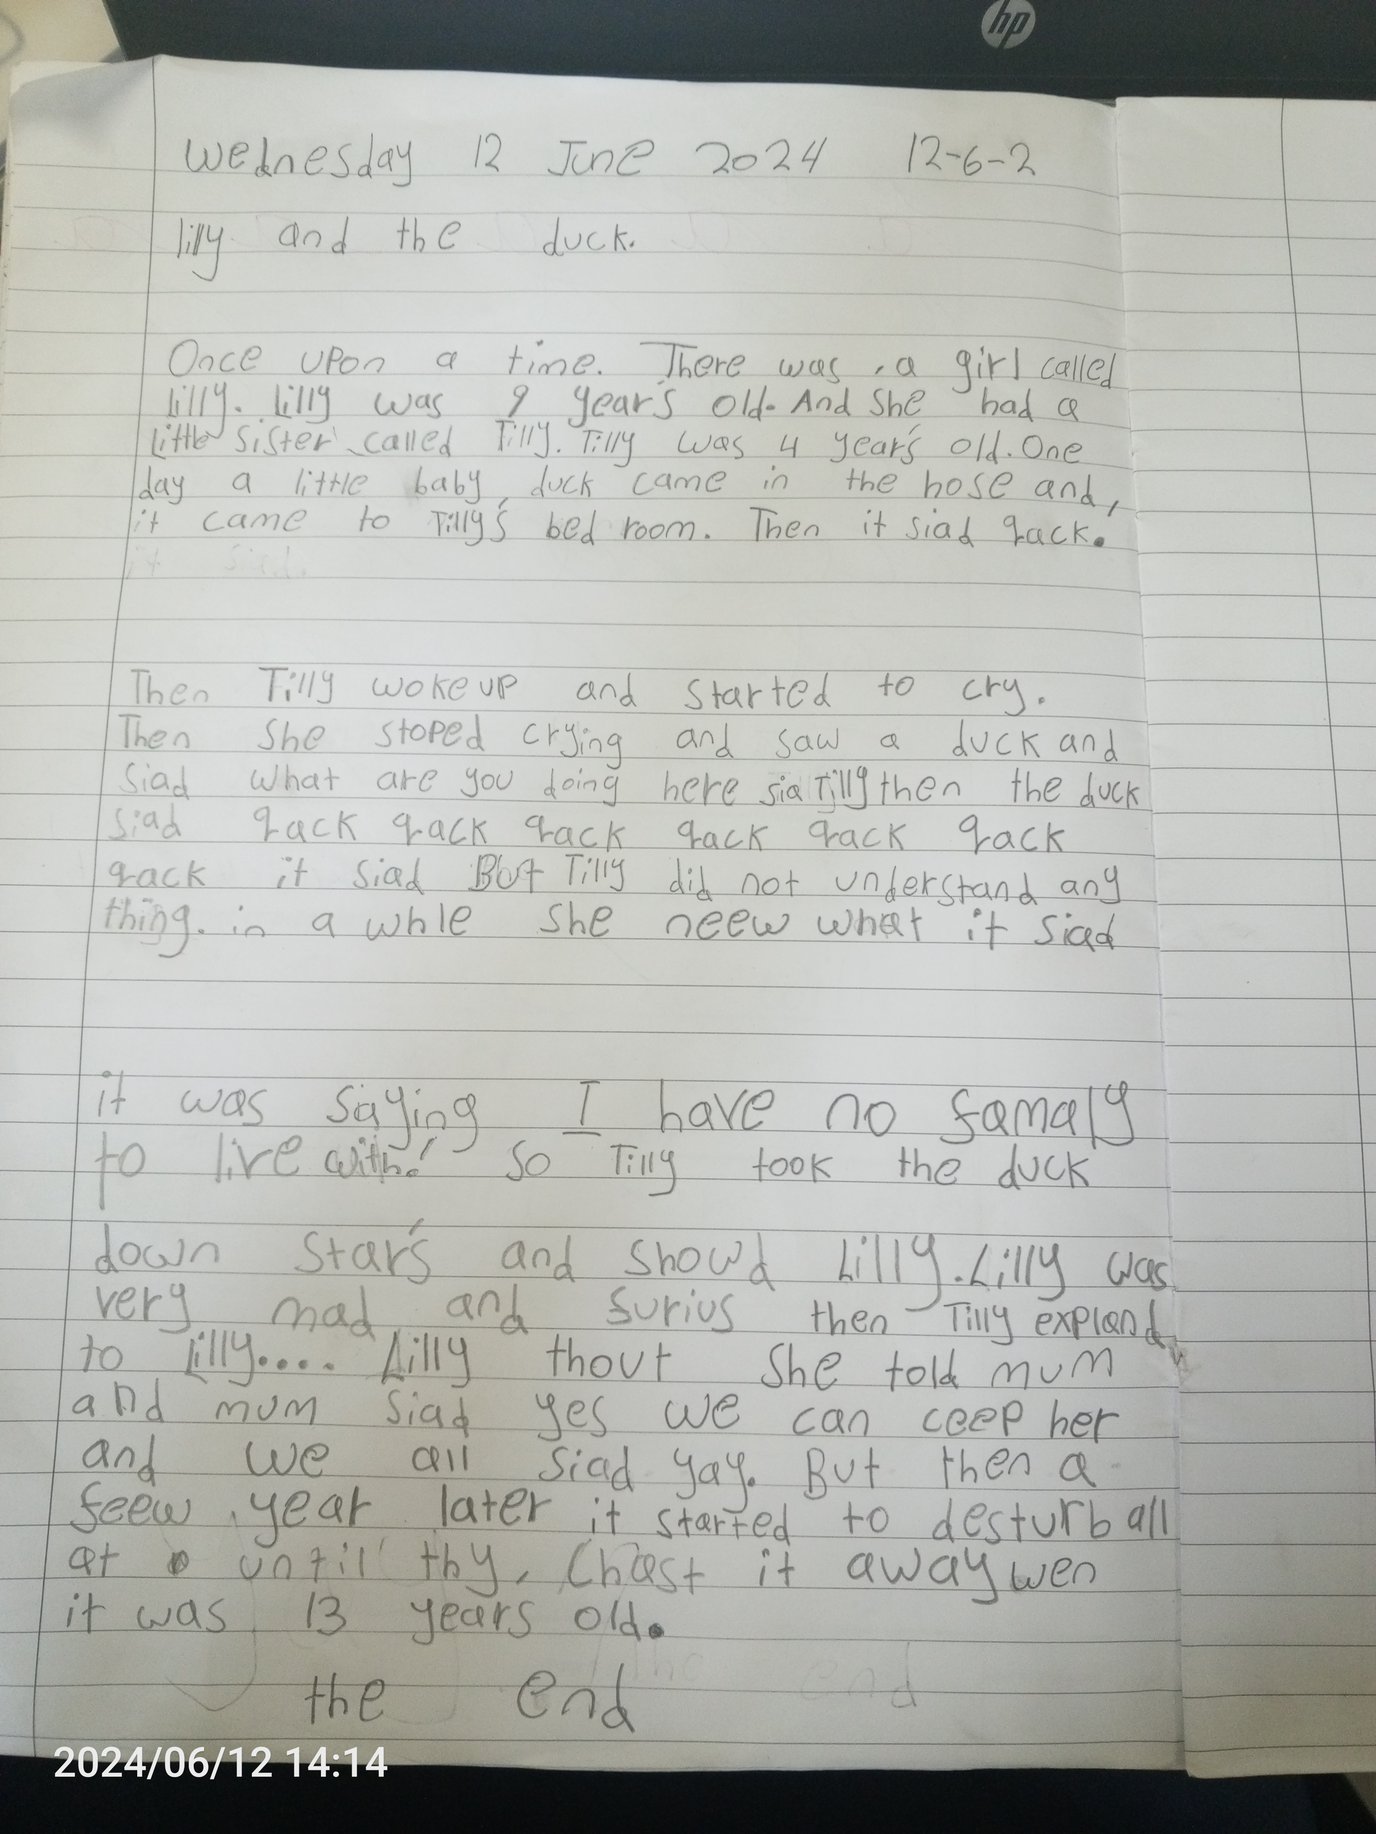 hp
Wednesday 12 June 2024 12-6-2
lilly and the duck.
Once upon a time. There was a girl called
lilly. lilly was 9 year's old. And She had a
little sister called Tilly. Tilly was 4 year's old. One
day a little baby, duck came in the hose and,
it came to Tilly's bed room. Then it siad qack.
Then Tilly woke up and started to cry.
Then She stoped crying and saw a duck and
siad what are you doing here sia Tilly then the duck
siad qack qack qack qack qack qack
qack it siad But Tilly did not understand any
thing. in a whle She neew what it siad
it was saying I have no famaly
to live with! so Tilly took the duck
down star's and showd Lilly. Lilly was
very mad and furius then Tilly expland
to Lilly.... Lilly thout She told mum
and mum siad yes we can ceep her
and we all siad yay. But then a
feew year later it started to desturb all
at until thy, Chast it away wen
it was 13 years old.
the end
2024/06/12 14:14